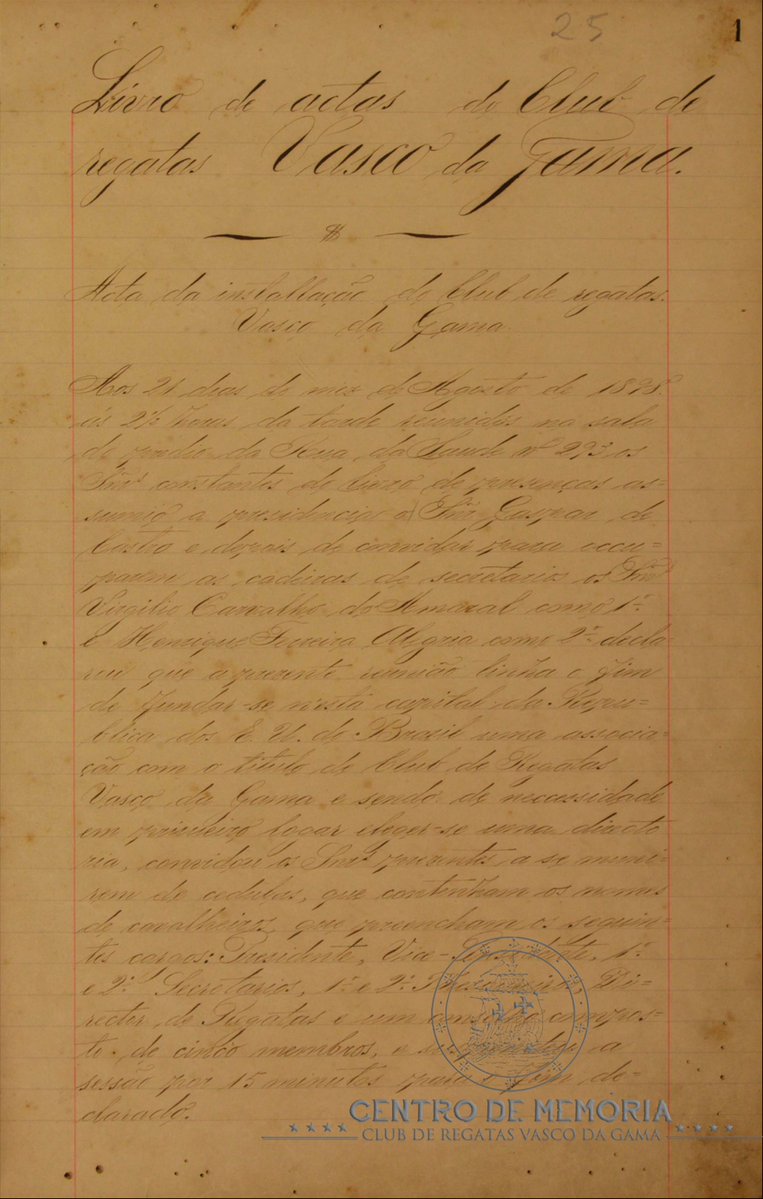 25
1
Livro de actas do Club de
regatas Vasco da Gama.
Acta da installação do Club de regatas
Vasco da Gama
Aos 21 dias do mez de Agosto de 1898
ás 2½ horas da tarde reunidos na sala
do predio da Rua da Saude nº 293 os
Snrs constantes do livro de presenças as-
sumio a presidencia o Snr Gaspar de
Castro e depois de convidar para occu-
parem as cadeiras de secretarios os Snrs
Virgilio Carvalho do Amaral como 1º
e Henrique Ferreira Alegria como 2º decla-
rou que a presente reunião tinha o fim
de fundar-se nesta capital da Repu-
blica dos E. U. do Brasil uma associa-
ção com o titulo de Club de Regatas
Vasco da Gama e sendo de necessidade
em primeiro logar eleger-se uma directo
ria, convidou os Snrs presentes a se muni-
rem de cedulas, que contenham os nomes
de cavalheiros que preencham os seguin-
tes cargos: Presidente, Vice-Presidente, 1º
e 2º Secretarios, 1º e 2º Thesoureiros, Di-
rector de Regatas e um conselho compos-
to de cinco membros, e a
sessão por 15 minutos para o fim de-
clarado.
CENTRO DE MEMÓRIA
CLUB DE REGATAS VASCO DA GAMA